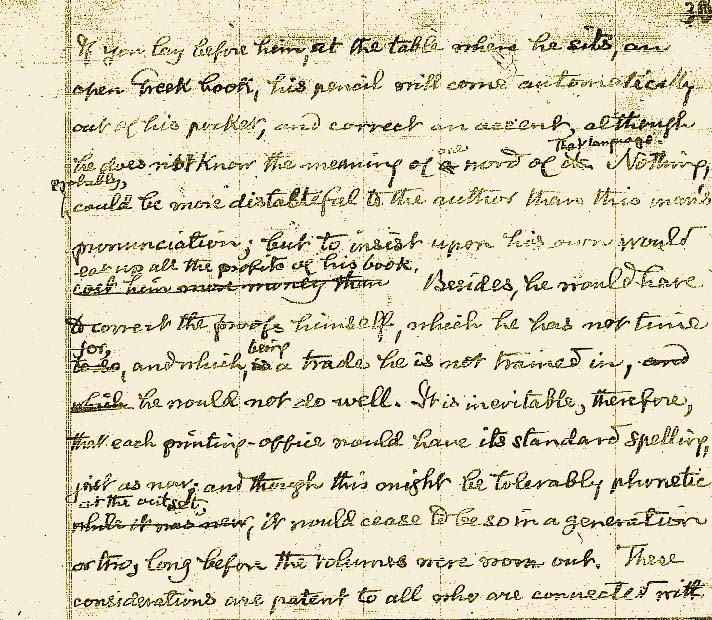 If you lay before him, at the table where he sits, an
open Greek book, his pencil will come automatically
out of his pocket, and correct an accent, although
one that language.
he does not know the meaning of a word of it. Nothing,
probably,
could be more distasteful to the author than this man's
pronunciation; but to insist upon his own would
eat up all the profits of his book.
cost him more money than Besides, he would have
to correct the proofs himself, which he has not time
for, being
to do, and which, is a trade he is not trained in, and
which he would not do well. It is inevitable, therefore,
that each printing-office would have its standard spelling,
just as now; and though this might be tolerably phonetic
at the outset,
while it was new, it would cease to be so in a generation
or two, long before the volumes were worn out. These
considerations are patent to all who are connected with